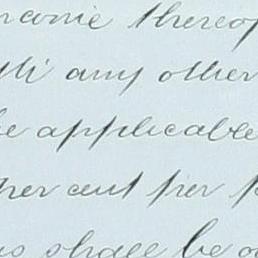 thereof
any other
be applicable
per cent per
shall be